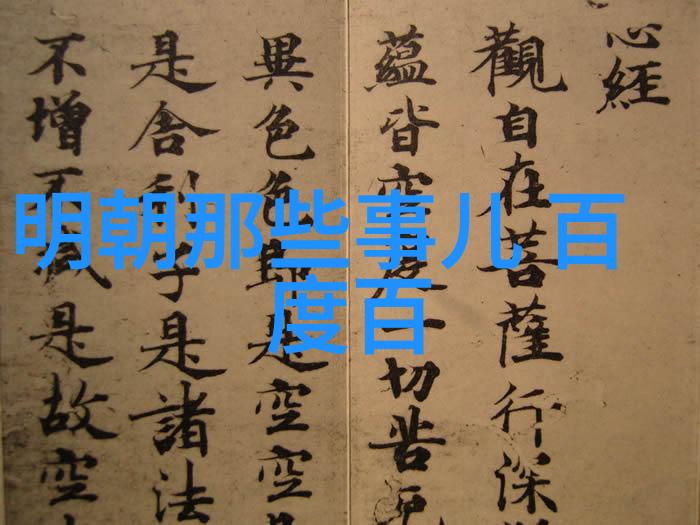 心經
觀自在菩薩行深
蘊皆空度一切苦厄
異色色即是空空
是舍利子是諸法
不增不減是故空
明朝那些事儿 百
度百